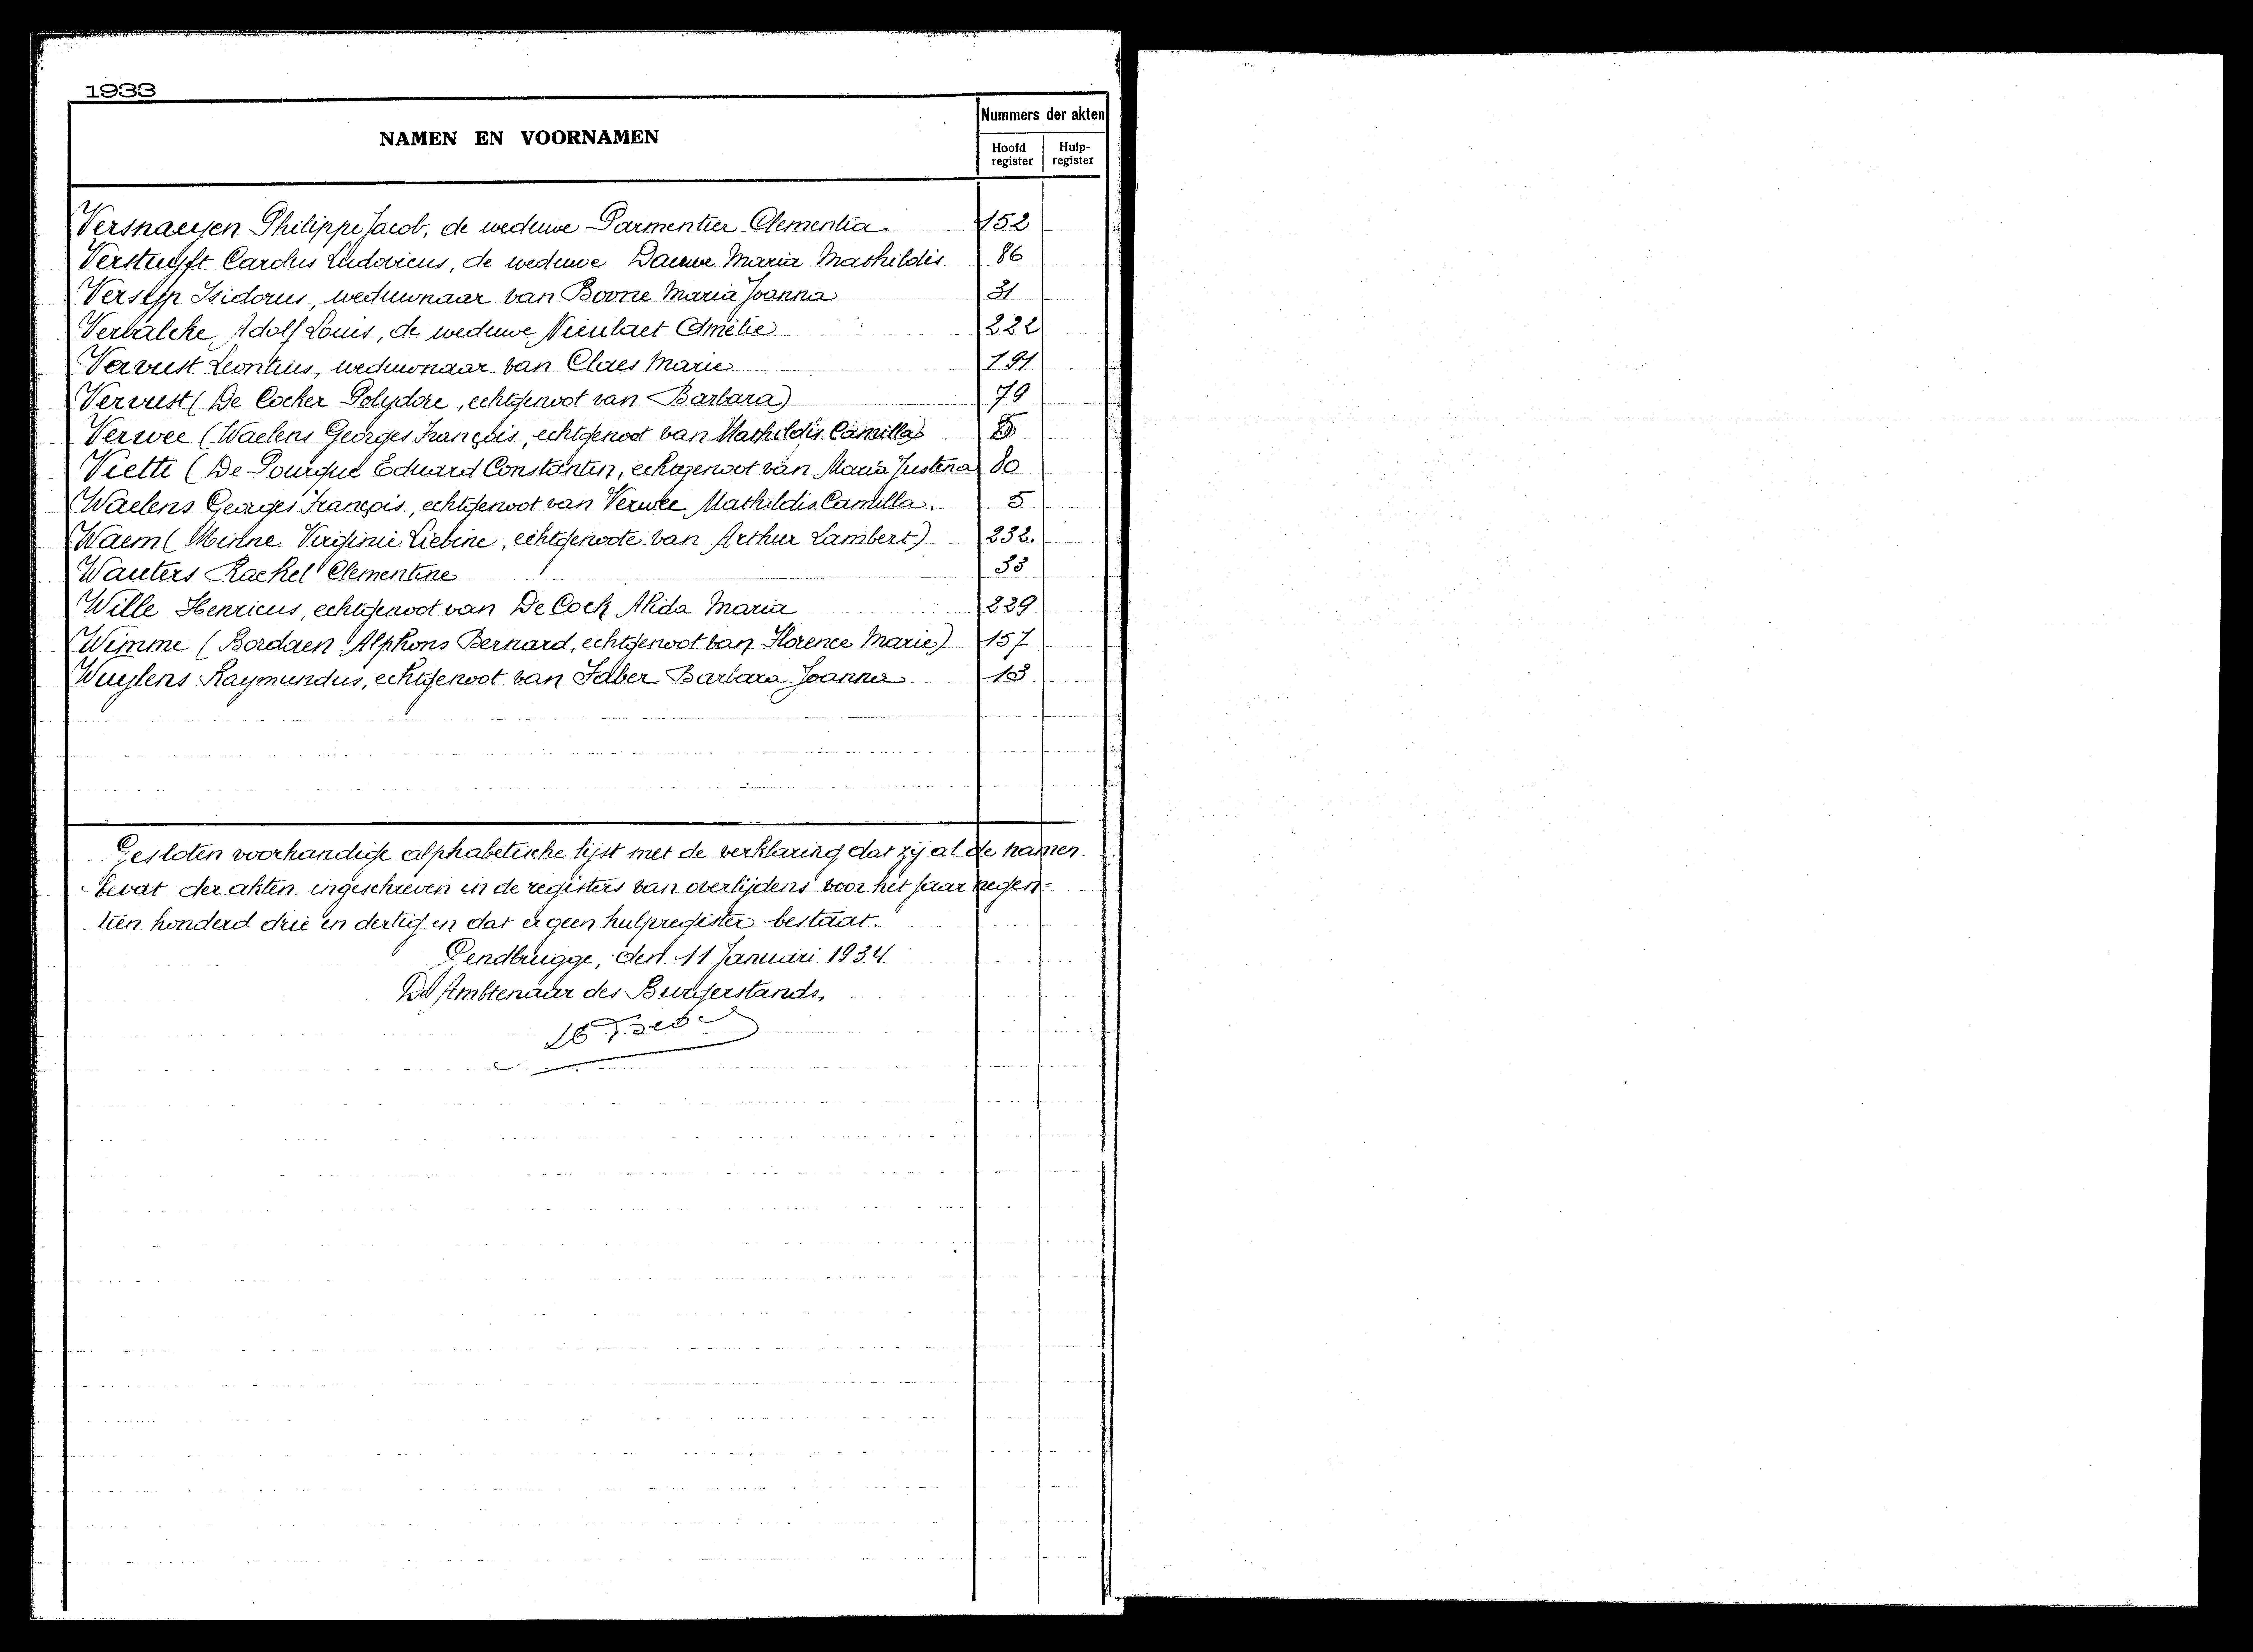 1933
NAMEN EN VOORNAMEN
Nummers der akten
Hoofd register
Hulp-register
Versnaeyen Philippe Jacob, de weduwe Parmentier Clementia 152
Verstuyft Carolus Ludovicus, de weduwe Dauwe Maria Mathildis. 86
Versyp Isidorus, weduwnaar van Boone Maria Joanna 31
Adolf Louis, de weduwe Amelie 222
Vervust Leontius, weduwnaar van Claes Marie 191
Vervust (De Cocker Polydore, echtgenoot van Barbara) 79
Verwee (Waelens Georges François, echtgenoot van Mathildis Camilla) 5
Vietti (De Pourque Eduard Constantin, echtgenoot van Maria Justina 80
Waelens Georges François, echtgenoot van Verwee Mathildis Camilla. 5
Waem ( Virginie Liebine, echtgenoote van Arthur Lambert) 232.
Wauters Rachel Clementine 33
Wille Henricus, echtgenoot van De Cock Alida Maria 229
Wimme (Bordaen Alphons Bernard, echtgenoot van Florence Marie) 157
Wuylens Raymundus, echtgenoot van Faber Barbara Joanna 13
Gesloten voorhandige alphabetische lijst met de verklaring dat zij al de namen
bevat der akten ingeschreven in de registers van overlijdens voor het jaar negen-
tien honderd drie en dertig en dat er geen hulpregister bestaat.
Gendbrugge, den 11 Januari 1934.
De Ambtenaar des Burgerstands,